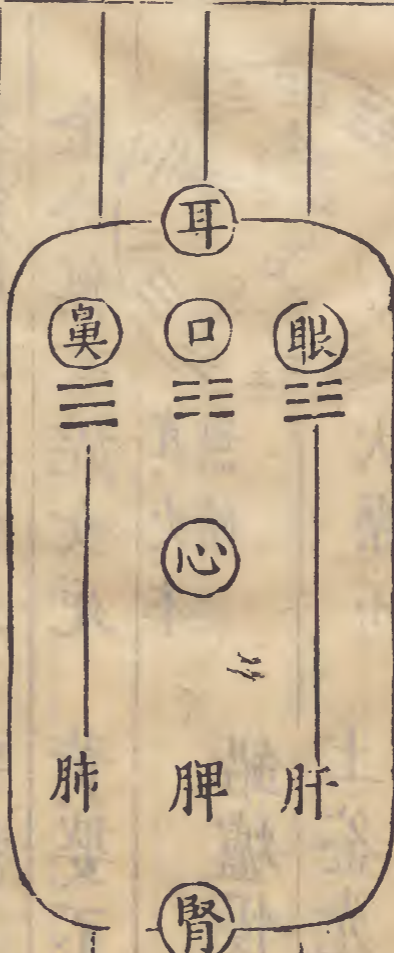 耳
眼
口
鼻
心
肝
脾
肺
腎